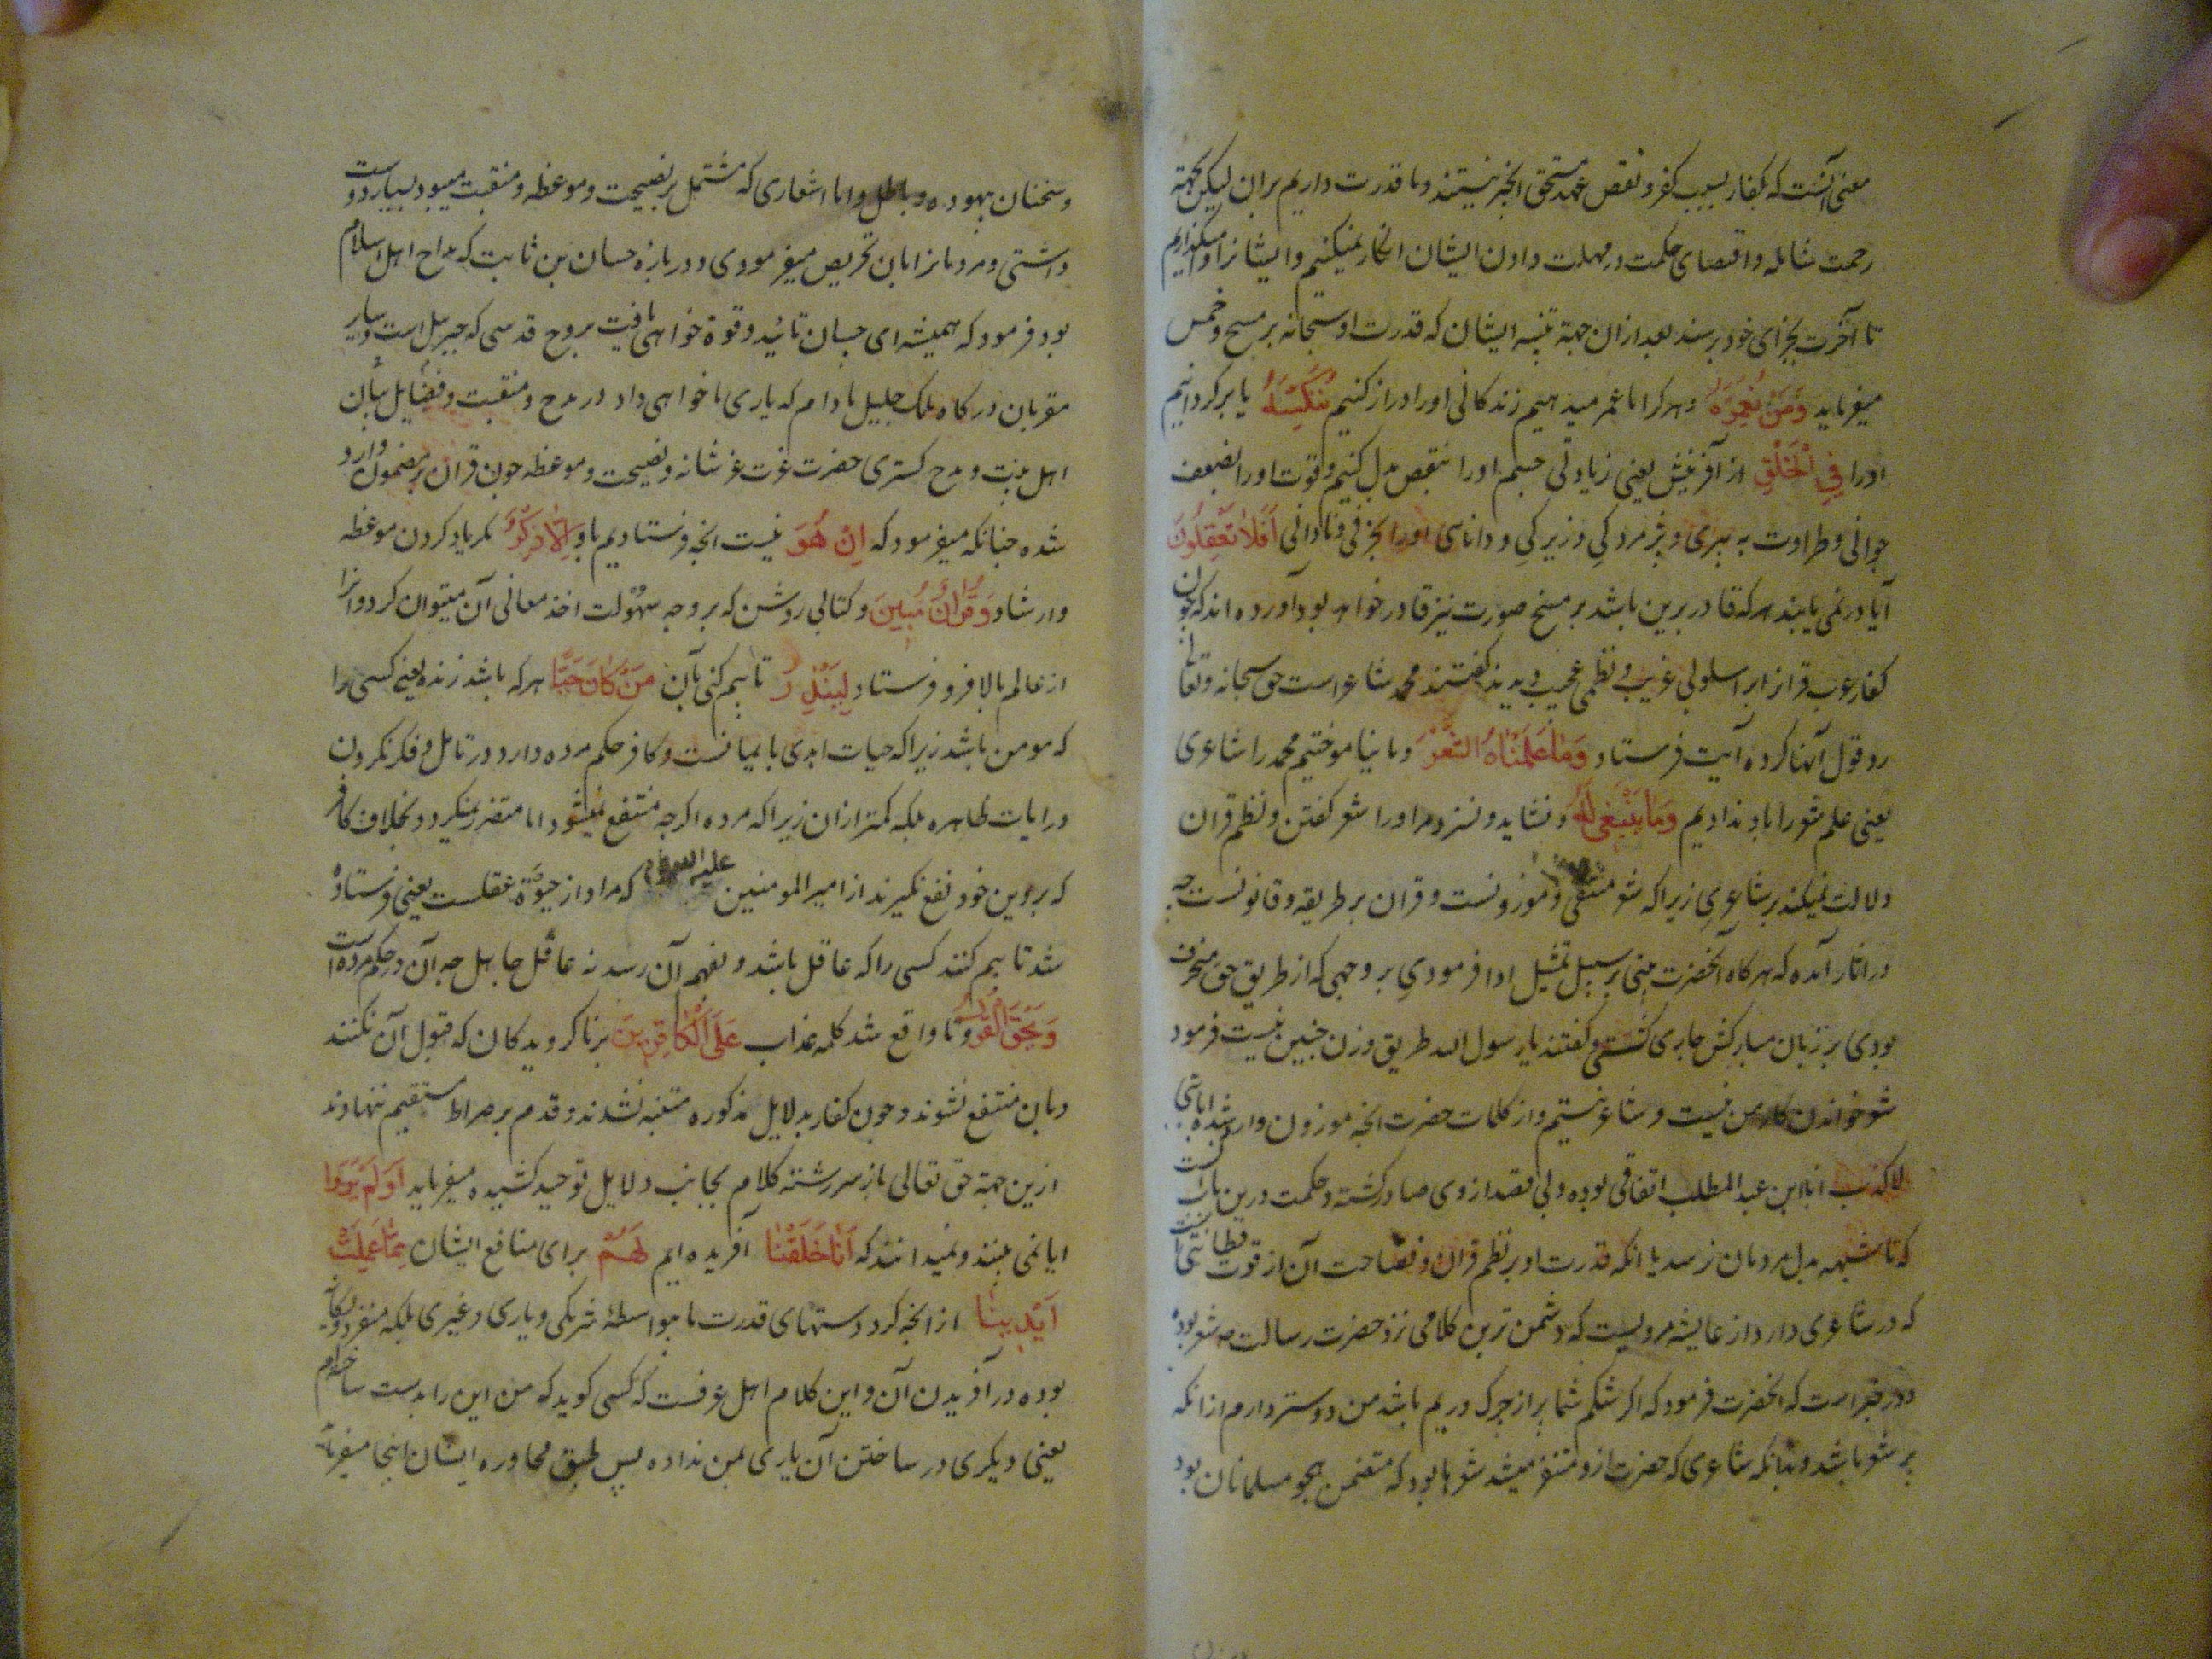 معنی آنست که کفار بسبب کفر و نقض عهد مستحق انجیز نیستند و ما قدرت داریم بران لیکن بجهة
رحمت شامله و اقتضای حکمت در مهلت دادن ایشان انکار نمیکنیم و ایشانرا وامیکذاریم
تا آخرت بجزای خود برسند بعد ازان جهة تنبیه ایشان که قدرت او سبحانه بر مسخ و طمس
میفرماید وَمَنْ نُعَمِّرْهُ و هرکرا ما عمر میدهیم و زندکانی او را دراز کنیم نُنَكِّسْهُ یا برکردانیم
اورا فِي الْخَلْقِ از آفرینش یعنی زیادتی جسم اورا بنقص بدل کنیم و قوت اورا بضعف
جوانی و طراوت به پیری و پژمردکی و زیرکی و دانایی اورا بخرفی و نادانی أَفَلَا تَعْقِلُونَ
آیا در نمی یابند هرکه قادر برین باشد بر مسخ صورت نیز قادر خواهد بود آورده اند که چون
کفار عرب قرانرا بر اسلوبی غریب و نظمی عجیب دیدند کفتند محمد شاعر است حق سبحانه و تعالی
رد قول آنها کرده آیت فرستاد وَمَا عَلَّمْنَاهُ الشِّعْرَ و ما نیاموختیم محمد را شاعری
یعنی علم شعر را باو ندادیم وَمَا يَنْبَغِي لَهُ و نشاید و نسزد مر اورا شعر کفتن و نظم قران
دلالت نمیکند بر شاعری زیراکه شعر مقفی و موزونست و قران بر طریقه و قانونست چه
در اثار آمده که هرکاه آنحضرت بیتی بر سبیل تمثیل ادا فرمودی بر وجهی که از طریق حق منحرف
بودی بر زبان مبارکش جاری کشتی و کفتند یا رسول الله طریق وزن چنین نیست فرمود
شعر خواندن کار من نیست و شاعر نیستم و از کلمات حضرت انچه موزون وارد شده
لا کذب انا ابن عبد المطلب اتفاقی بوده و بی قصد از وی صادر کشته و حکمت درین باب آنست
که تا شبهه بدل مردمان نرسد یا انکه قدرت او بر نظم قران و فصاحت آن از قوت
که در شاعری دارد از عایشه مرویست که دشمن ترین کلامی نزد حضرت رسالت ص شعر بوده
و در خبر است که انحضرت فرمود که اکر شکم شما پر از چرک و ریم باشد من دوستر دارم از انکه
پر شعر باشد و بدانکه شاعری که حضرت ازو متنفر میشد شعرها بود که متضمن هجو مسلمانان بود
و سخنان بیهوده و باطل و اما اشعاری که مشتمل بر نصیحت و موعظه و منقبت میبود بسیار دوست
داشتی و مردمانرا بان تحریص میفرمودی و در بارهٔ حسان بن ثابت که مداح اهل اسلام
بود فرمود که همیشه ای حسان تائید و قوة خواهی یافت بروح قدسی که جبرئیل است و سایر
مقربان درکاه ملک جلیل مادام که یاری ما خواهی داد در مدح و منقبت و فضایل بیان
اهل بیت و مدح کستری حضرت عزت عز شانه و نصیحت و موعظه چون قران بر مضمون وارد
شده چنانکه میفرمود که إِنْ هُوَ نیست انچه فرستادیم باو إِلَّا ذِكْرٌ مکر یاد کردن موعظه
و ارشاد وَقُرْآنٌ مُبِينٌ و کتابی روشن که بر وجه سهولت اخذ معانی آن میتوان کرد و انرا
از عالم بالا فرو فرستاد لِيُنْذِرَ تا بیم کنی بآن مَنْ كَانَ حَيًّا هرکه باشد زنده یعنی کسی را
که مومن باشد زیراکه حیات ابدی بایمانست و کافر حکم مرده دارد در تامل و فکر نکردن
در ایات ظاهره بلکه کمتر ازان زیراکه مرده اکرچه منتفع نمیشود اما متضرر نمیکردد بخلاف کافر
که بر دین خود نفع نکیرند از امیر المومنین علیه السلام که مراد از حیوة عقلست یعنی فرستاده
شد تا بیم کنند کسی را که عاقل باشد و بفهم آن رسد نه غافل جاهل چه آن در حکم مرده است
وَيَحِقَّ الْقَوْلُ و تا واقع شد کلمه عذاب عَلَى الْكَافِرِينَ بر ناکرویدکان که قبول آن نکنند
و بان منتفع نشوند و چون کفار بدلایل مذکوره متنبه نشدند و قدم بر صراط مستقیم ننهادند
ازین جهة حق تعالی باز سررشته کلام بجانب دلایل توحید کشیده میفرماید أَوَلَمْ يَرَوْا
ایا نمی بینند و نمیدانند که أَنَّا خَلَقْنَا آفریده ایم لَهُمْ برای منافع ایشان مِمَّا عَمِلَتْ
أَيْدِينَا از انچه کرد دستهای قدرت ما بیواسطهٔ شریکی و یاری و غیری بلکه منفرد و یکانه
بوده در آفریدن آن و این کلام اهل عرفست که کسی کوید که من این را بدست ساختم
یعنی دیکری در ساختن آن یاری بمن نداده پس طبق محاوره ایشان اینجا میفرماید